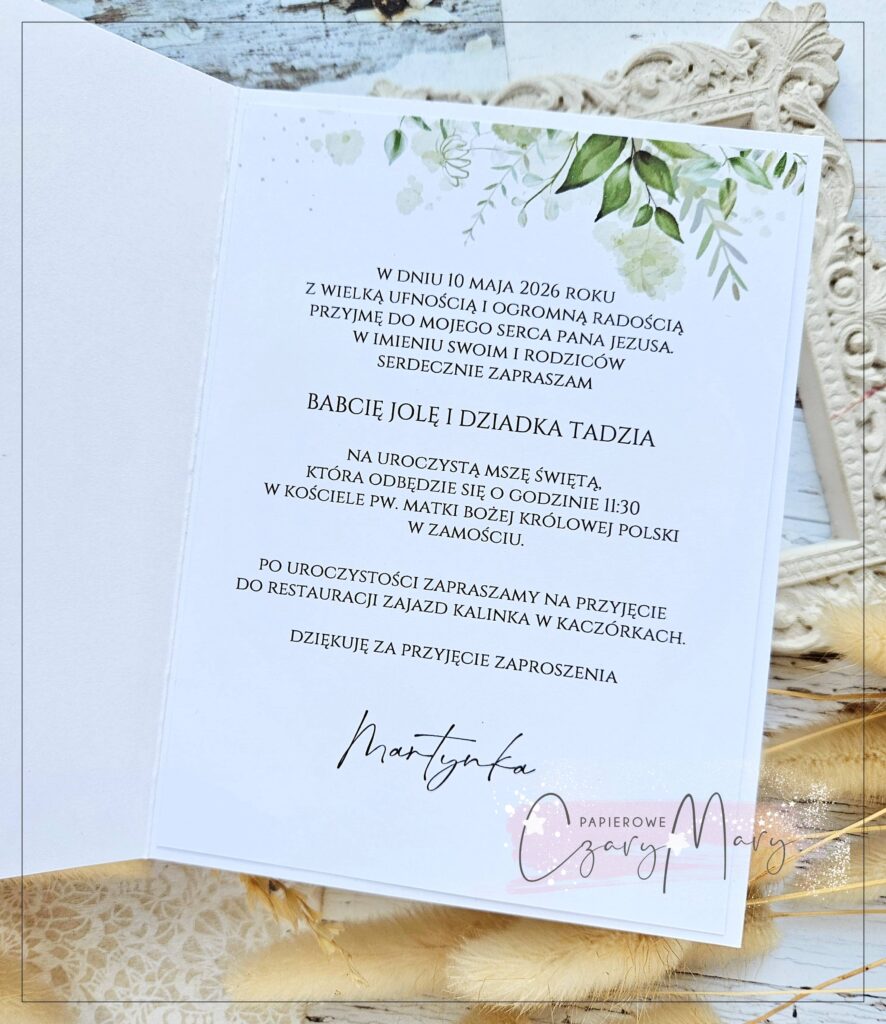 W DNIU 10 MAJA 2026 ROKU
Z WIELKĄ UFNOŚCIĄ I OGROMNĄ RADOŚCIĄ
PRZYJMĘ DO MOJEGO SERCA PANA JEZUSA.
W IMIENIU SWOIM I RODZICÓW
SERDECZNIE ZAPRASZAM
BABCIĘ JOLĘ I DZIADKA TADZIA
NA UROCZYSTĄ MSZĘ ŚWIĘTĄ,
KTÓRA ODBĘDZIE SIĘ O GODZINIE 11:30
W KOŚCIELE PW. MATKI BOŻEJ KRÓLOWEJ POLSKI
W ZAMOŚCIU.
PO UROCZYSTOŚCI ZAPRASZAMY NA PRZYJĘCIE
DO RESTAURACJI ZAJAZD KALINKA W KACZÓRKACH.
DZIĘKUJĘ ZA PRZYJĘCIE ZAPROSZENIA
Martynka
PAPIEROWE
Czary Mary